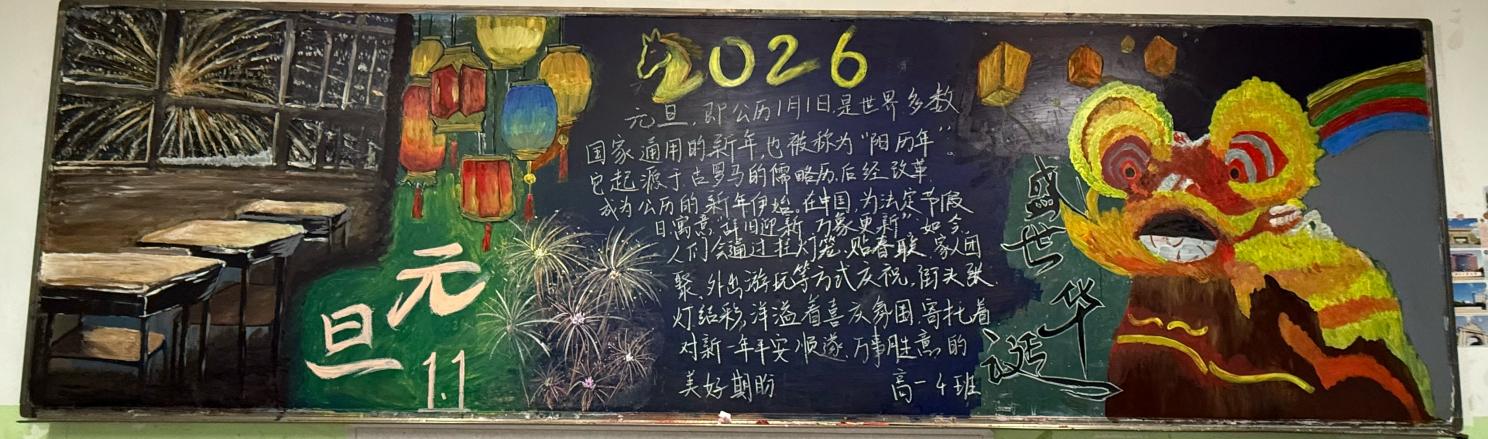 元旦
1.1
2026
元旦，即公历1月1日，是世界多数
国家通用的新年也被称为“阳历年”。
它起源于古罗马的儒略历，后经改革
成为公历的新年伊始。在中国，为法定节假
日寓意“辞旧迎新，万象更新”。如今，
人们会通过挂灯笼、贴春联、家人团
聚、外出游玩等方式庆祝，街头张
灯结彩，洋溢着喜庆氛围，寄托着
对新一年平安顺遂、万事胜意的
美好期盼
高一4班
盛世
华诞